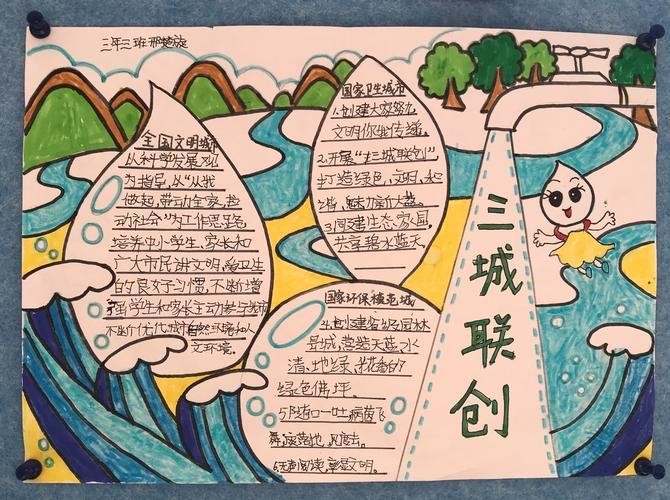 三年三班邢楚旋
全国文明城市
从科学发展观
为指导,从“从我
做起,带动全家,推
动社会”为工作思路
培养中小学生,家长和
广大市民讲文明,爱卫生
的良好习惯,不断增
学生和家长主动参与城市
不断优化城市自然环境和人
文环境。
国家卫生城市
1.创建大家努力
文明你我传递。
2.开展“三城联创”,
打造绿色,文明,和
谐,魅力
3.同建生态家园,
共享碧水蓝天
国家环保模范城
4.创建省级园林
县城,营造天蓝,水
清,地绿,花香的
绿色佛坪。
5.随口一吐病菌飞
舞,
6.无声阅读,彰显文明。
三城联创